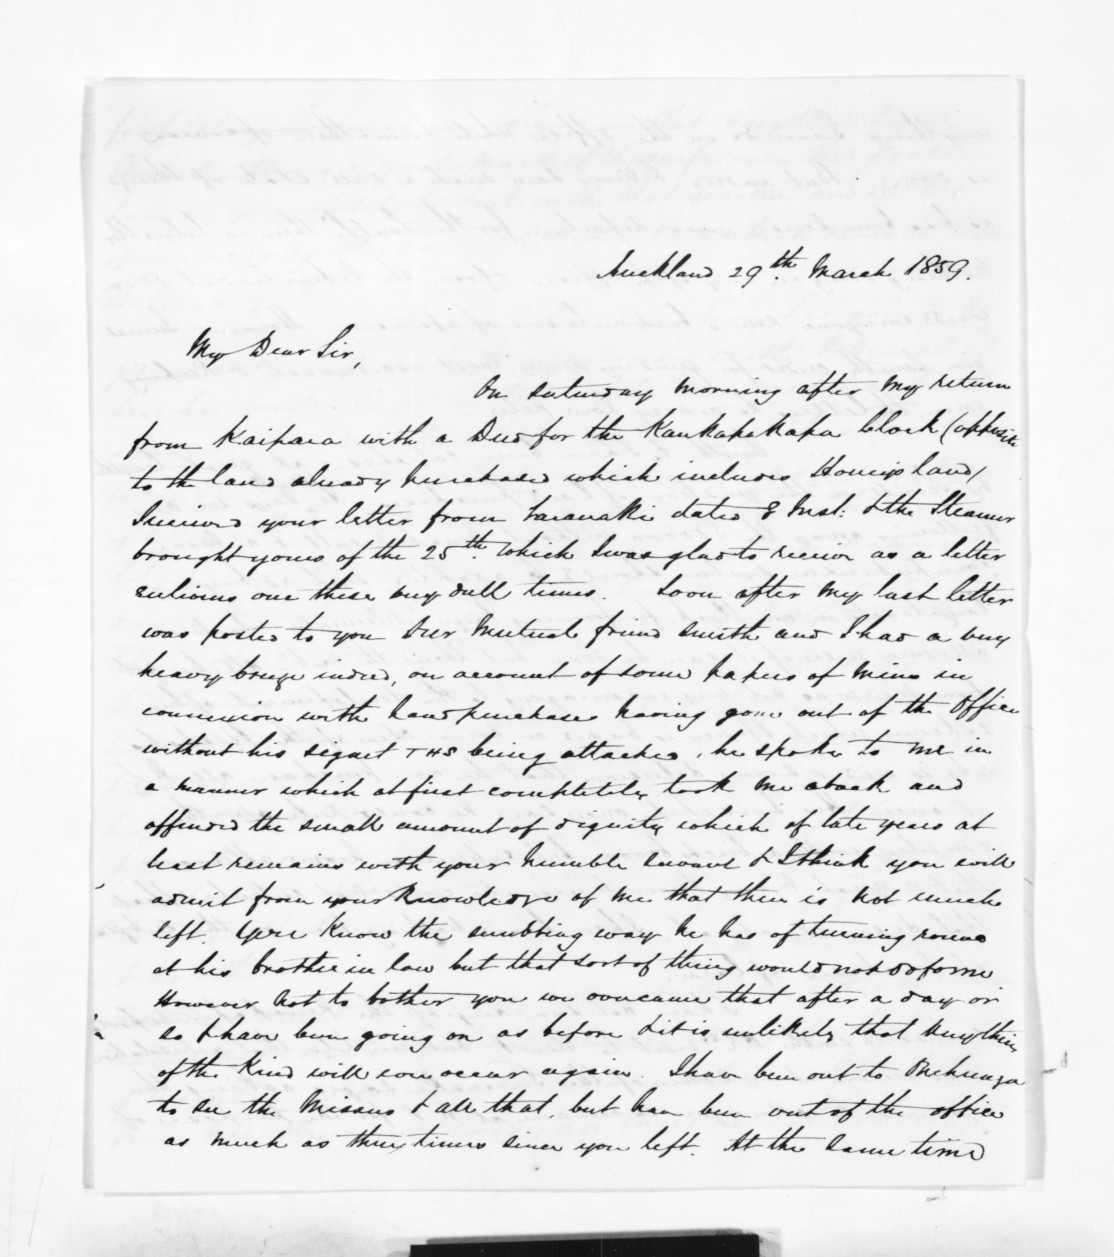 Auckland 29th March 1859.
My Dear Sir,
On Saturday morning after my return
from Kaipara with a Deed for the Kaukapakapa block (opposite
to the land already purchased which includes land)
I received your letter from Taranaki dated 8 Inst: & the Steamer
brought yours of the 25th which I was glad to receive as a letter
enlivens one these very dull times. Soon after my last letter
was posted to you Our Mutual friend Smith and I had a very
heavy breeze indeed, on account of some papers of mine in
connexion with land purchases having gone out of the Office
without his signet THS being attached, he spoke to me in
a manner which at first completely took me aback and
offended the small amount of dignity which of late years at
least remains with your humble servant & I think you will
admit from your knowledge of me that there is not much
left. You know the snubbing way he has of turning round
at his brother in law but that sort of thing would not do for me
However not to bother you we overcame that after a day or
so & have been going on as before & it is unlikely that any thing
of the kind will ever occur again. I have been out to Onehunga
to see the Missus & all that, but have been out of the office
as much as three times since you left. At the same time